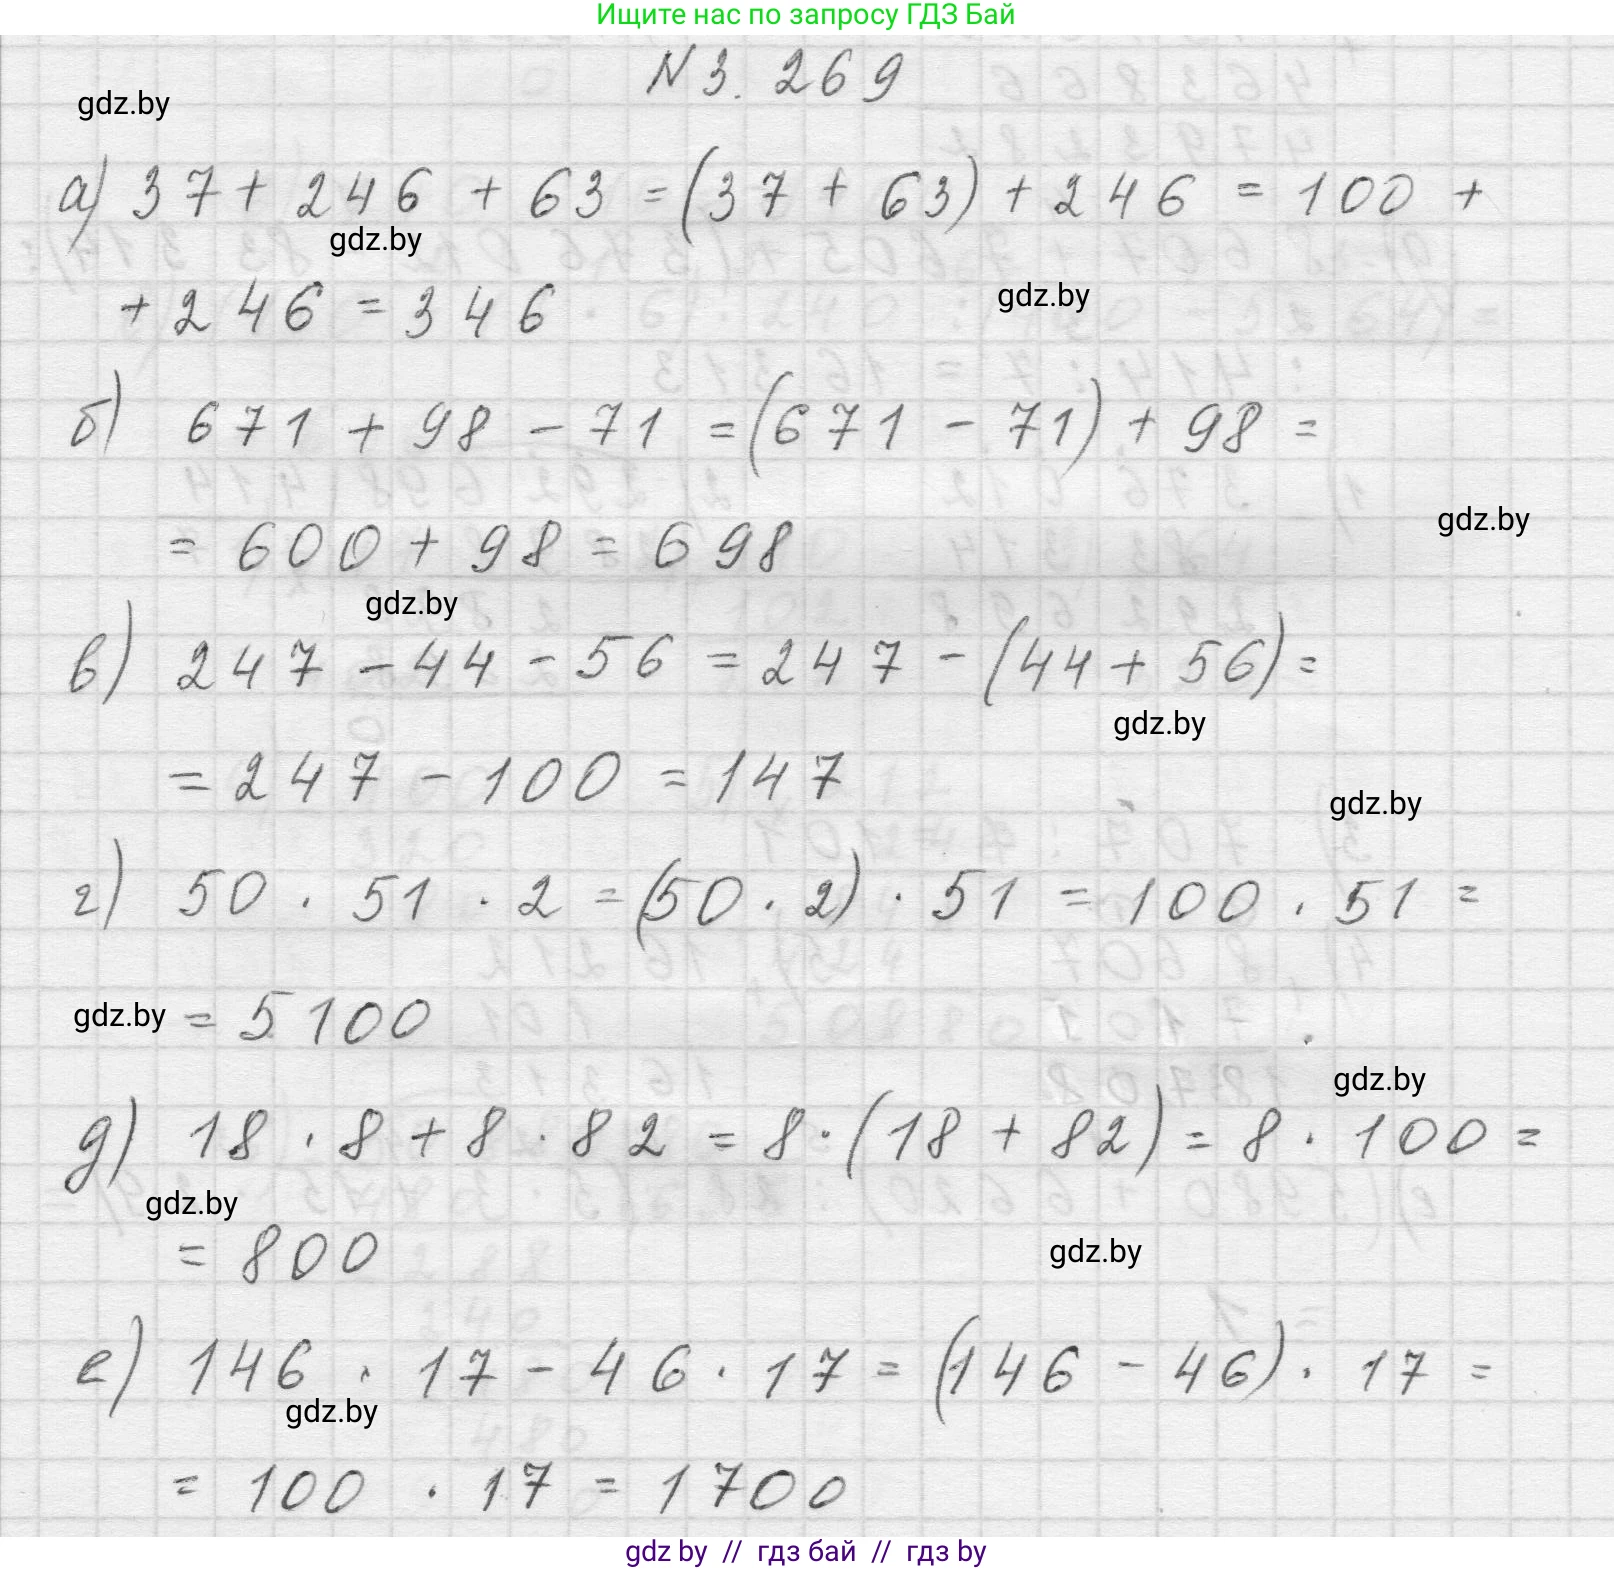 Ищите нас по запросу ГДЗ Бай
N 3. 269
gdz.by
а) 37 + 246 + 63 = (37 + 63) + 246 = 100 +
gdz.by
+ 246 = 346
gdz.by
б) 671 + 98 - 71 = (671 - 71) + 98 =
gdz.by
= 600 + 98 = 698
gdz.by
в) 247 - 44 - 56 = 247 - (44 + 56) =
gdz.by
= 247 - 100 = 147
gdz.by
г) 50 · 51 · 2 = (50 · 2) · 51 = 100 · 51 =
gdz.by = 5100
gdz.by
д) 18 · 8 + 8 · 82 = 8 · (18 + 82) = 8 · 100 =
gdz.by
= 800
gdz.by
е) 146 · 17 - 46 · 17 = (146 - 46) · 17 =
gdz.by
= 100 · 17 = 1700
gdz by // гдз бай // гдз by